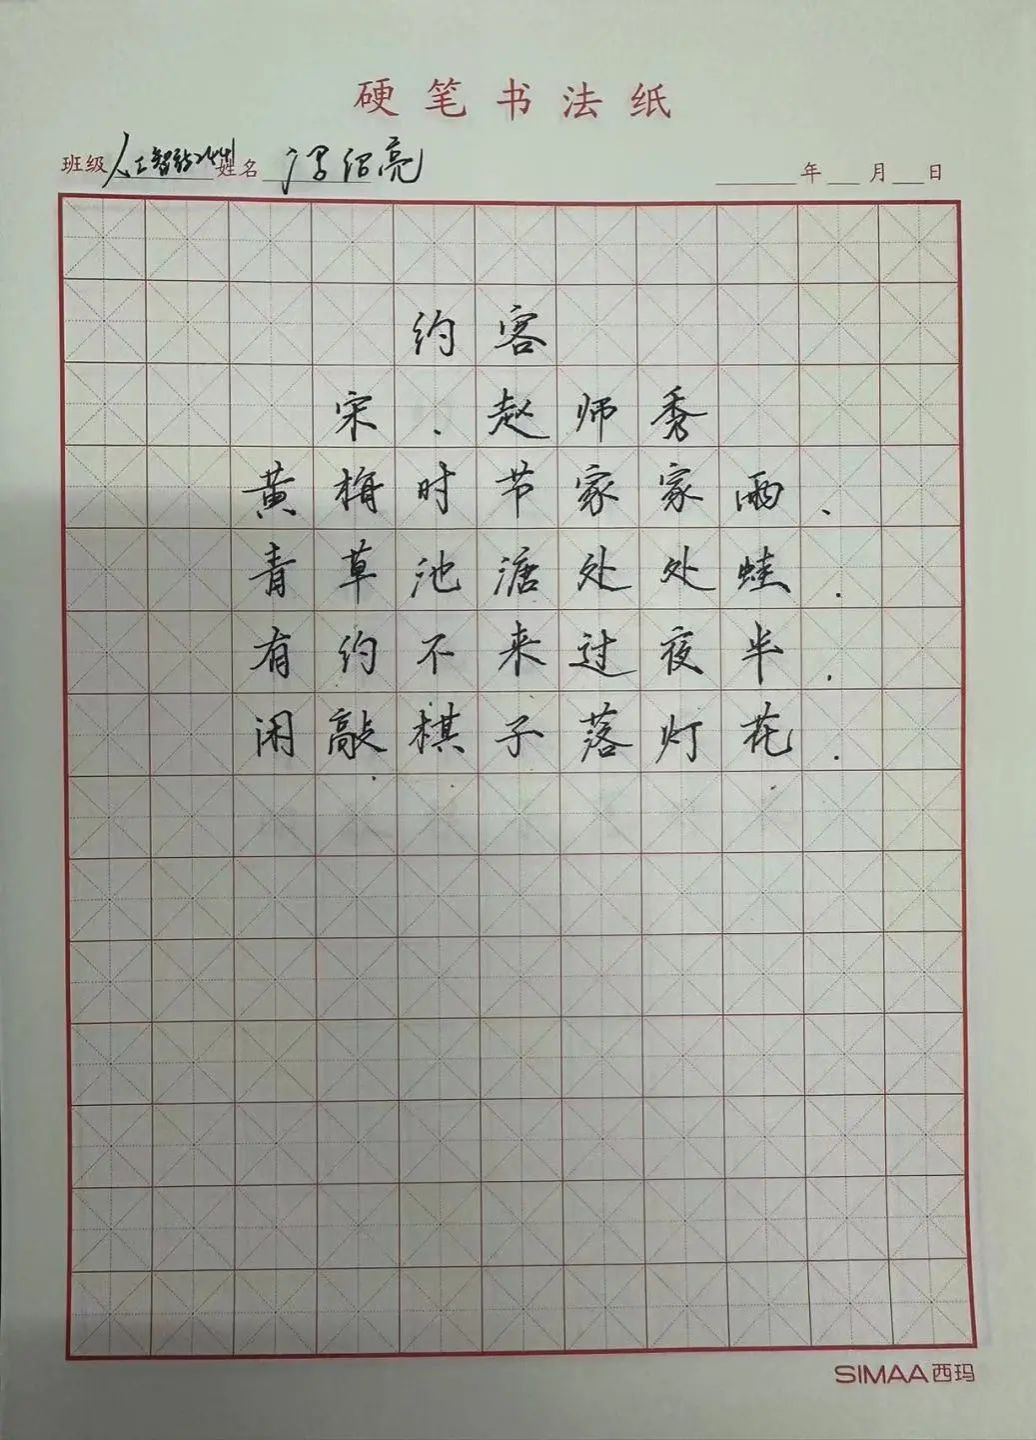 硬笔书法纸
班级 人工智能 姓名 绍亮 年 月 日
约客
宋.赵师秀
黄梅时节家家雨、
青草池溏处处蛙.
有约不来过夜半.
闲敲棋子落灯花.
SIMAA西玛